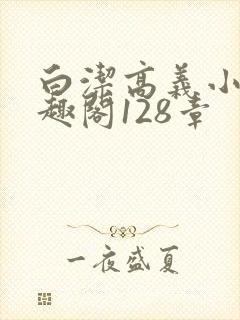 白潔高義小
趣閣128章
一夜盛夏